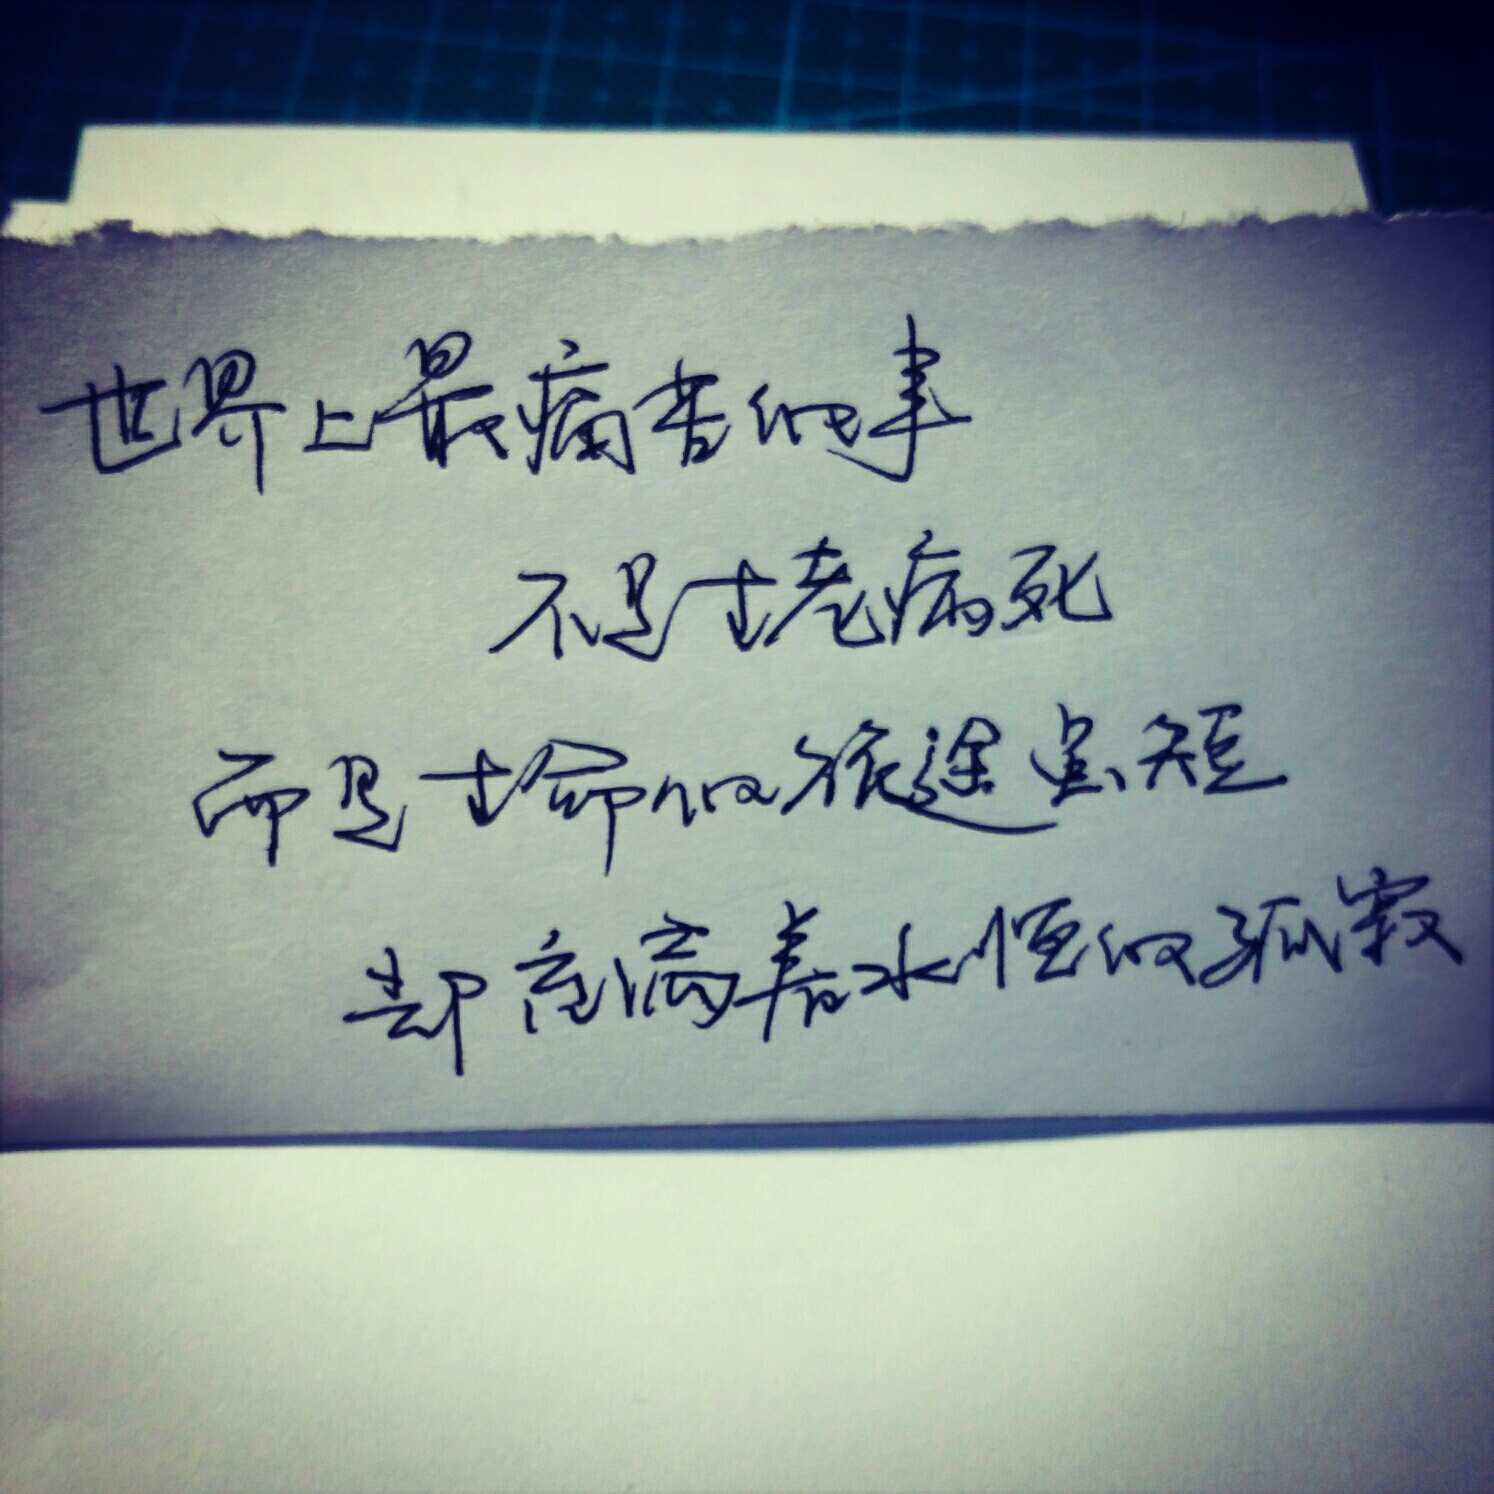 世界上最痛苦的事
不是生老病死
而是生命的旅途虽短
却充满着永恒的孤寂